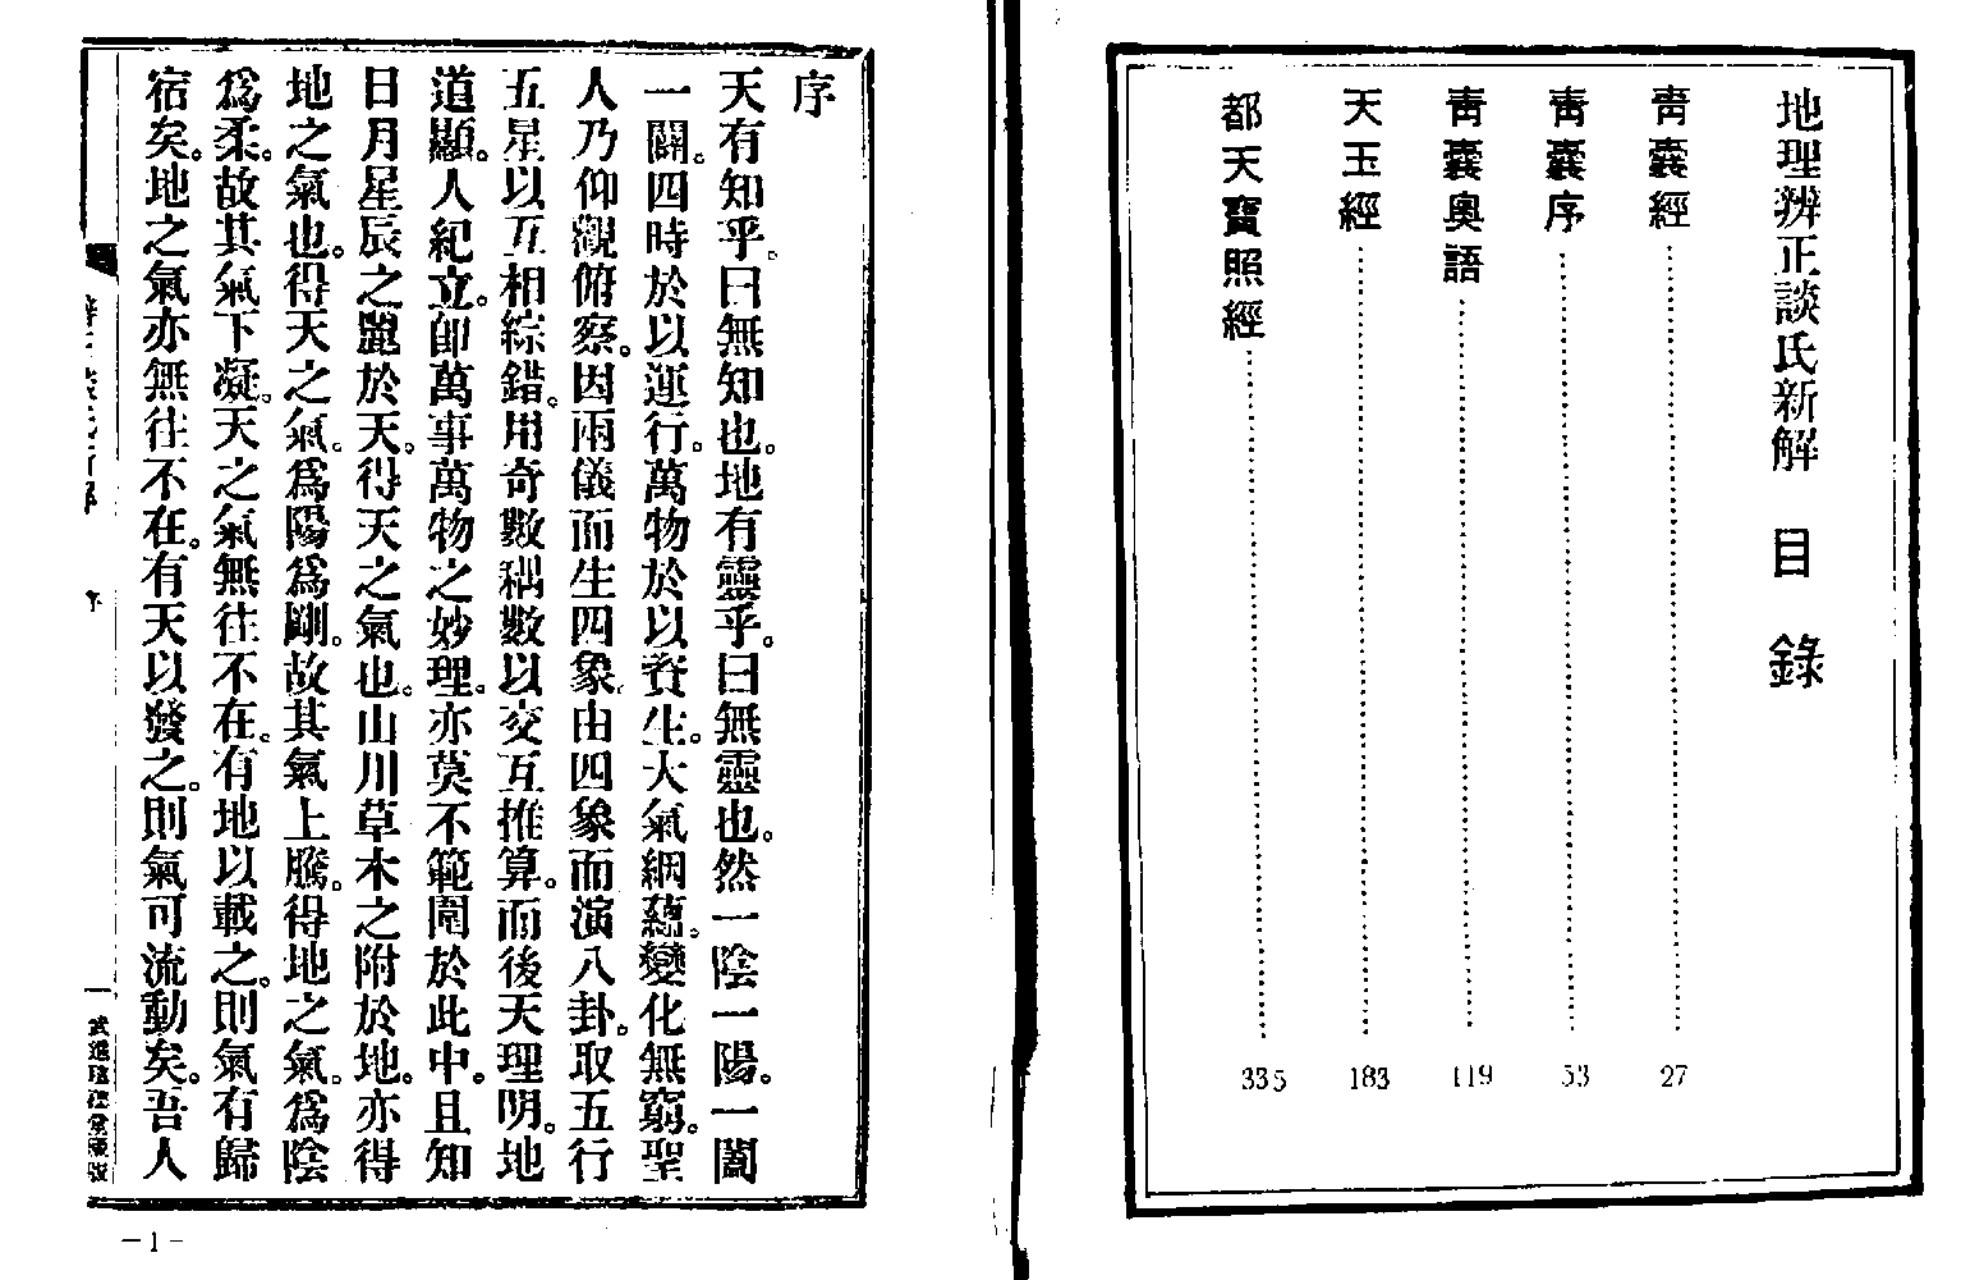 地理辨正談氏新解　目錄
青囊經 27
青囊序 53
青囊奧語 119
天玉經 183
都天寶照經 335
序
天有知乎。曰無知也。地有靈乎。曰無靈也。然一陰一陽。一闔
一闢。四時於以運行。萬物於以資生。大氣絪蘊。變化無窮。聖
人乃仰觀俯察。因兩儀而生四象。由四象而演八卦。取五行
五星以互相綜錯。用奇數耦數以交互推算。而後天理明。地
道顯。人紀立。卽萬事萬物之妙理。亦莫不範圍於此中。且知
日月星辰之麗於天。得天之氣也。山川草木之附於地。亦得
地之氣也。得天之氣。爲陽爲剛。故其氣上騰。得地之氣。爲陰
爲柔。故其氣下凝。天之氣無往不在。有地以載之。則氣有歸
宿矣。地之氣亦無往不在。有天以發之。則氣可流動矣。吾人
序
一
武進
-1-